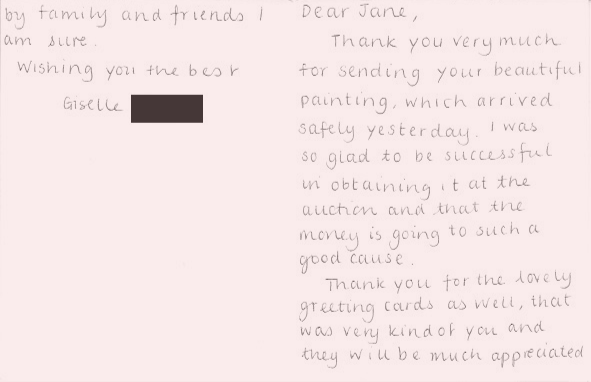 Dear Jane,
Thank you very much
for sending your beautiful
painting, which arrived
safely yesterday. I was
so glad to be successful
in obtaining it at the
auction and that the
money is going to such a
good cause.
Thank you for the lovely
greeting cards as well, that
was very kind of you and
they will be much appreciated
by family and friends I
am sure.
Wishing you the best
Giselle